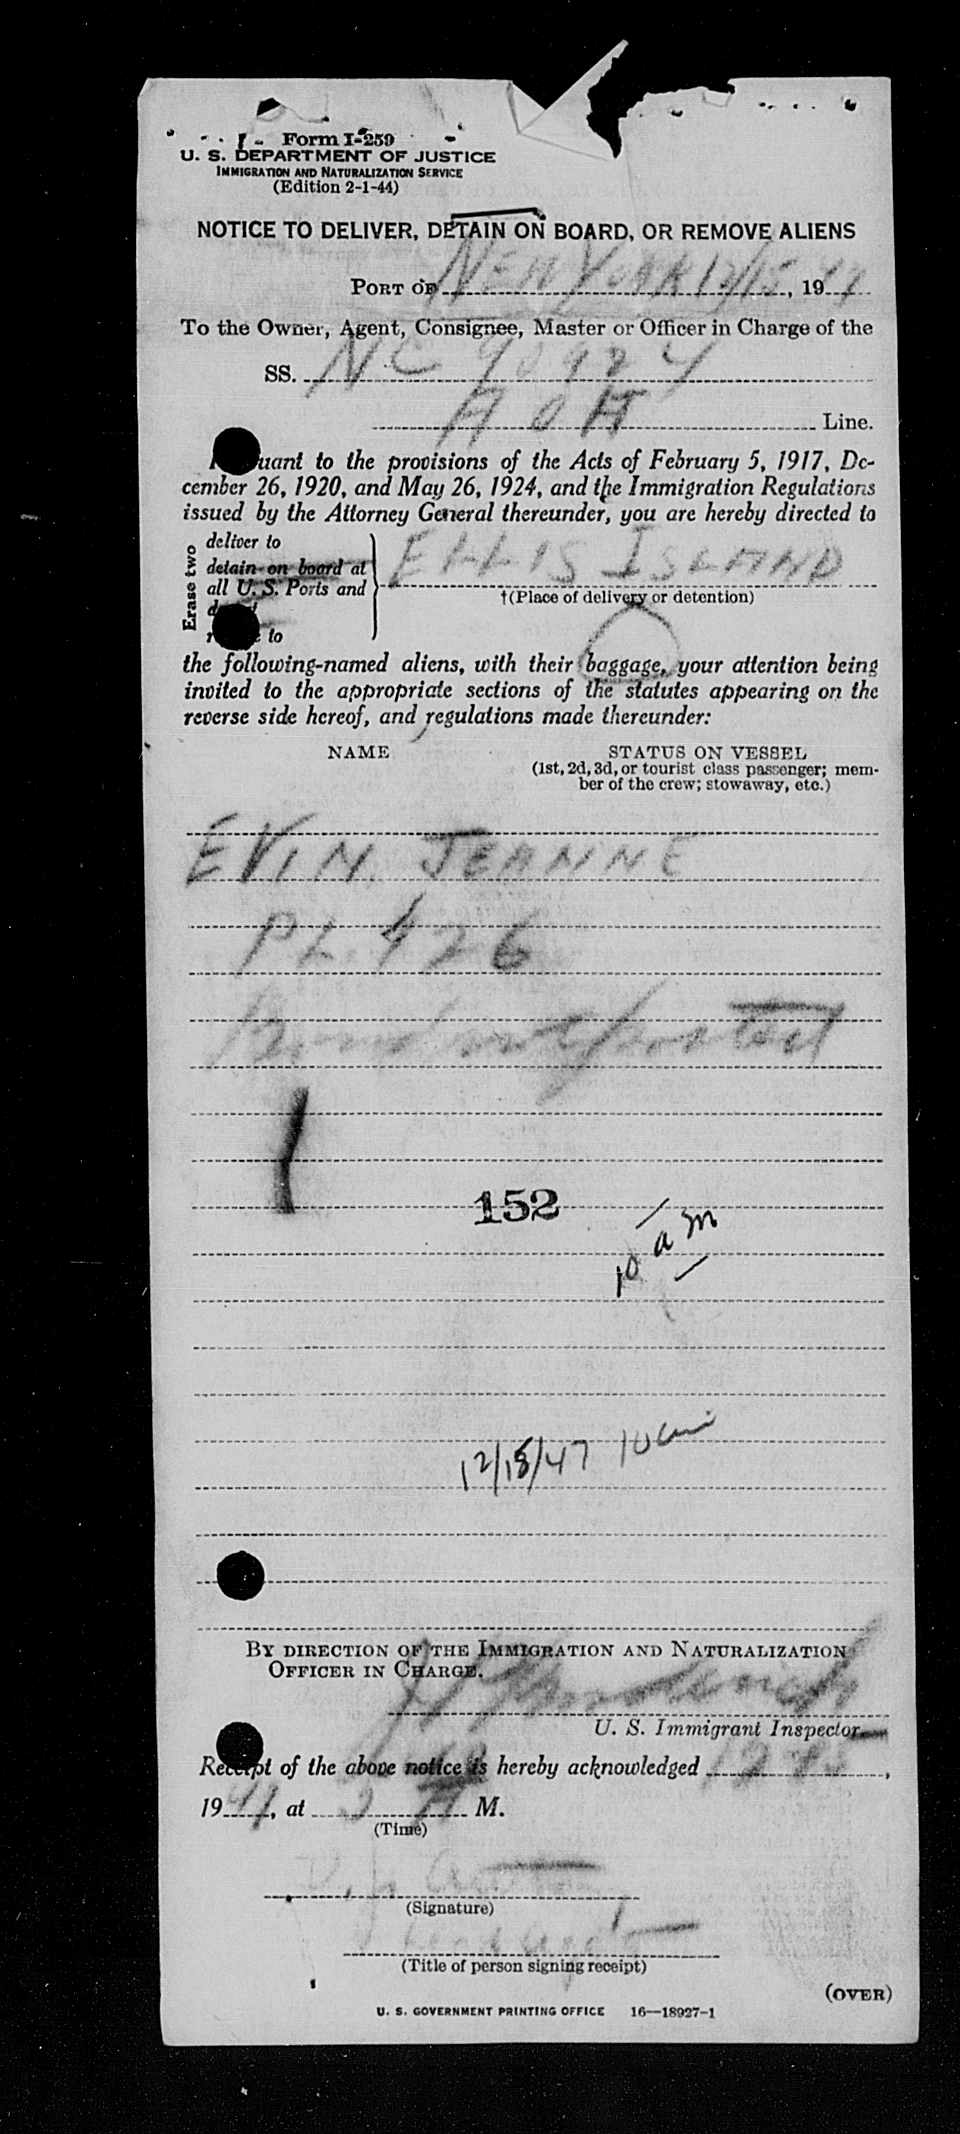 Form I-259
U. S. DEPARTMENT OF JUSTICE
IMMIGRATION AND NATURALIZATION SERVICE
(Edition 2-1-44)
NOTICE TO DELIVER, DETAIN ON BOARD, OR REMOVE ALIENS
PORT OF NEW YORK 12/15, 1947
To the Owner, Agent, Consignee, Master or Officer in Charge of the
SS. NC 90924
A O A Line.
uant to the provisions of the Acts of February 5, 1917, De-
cember 26, 1920, and May 26, 1924, and the Immigration Regulations
issued by the Attorney General thereunder, you are hereby directed to
Erase two
deliver to
detain on board at
all U. S. Ports and
to
ELLIS ISLAND
†(Place of delivery or detention)
the following-named aliens, with their baggage, your attention being
invited to the appropriate sections of the statutes appearing on the
reverse side hereof, and regulations made thereunder:
NAME STATUS ON VESSEL
(1st, 2d, 3d, or tourist class passenger; mem-
ber of the crew; stowaway, etc.)
EVIN, JEANNE
PL 426
Bond not posted
152
10 a m
12/18/47 10 am
BY DIRECTION OF THE IMMIGRATION AND NATURALIZATION
OFFICER IN CHARGE.
U. S. Immigrant Inspector
Receipt of the above notice is hereby acknowledged
1947, at M.
(Time)
(Signature)
(Title of person signing receipt)
(OVER)
U. S. GOVERNMENT PRINTING OFFICE 16—18927-1